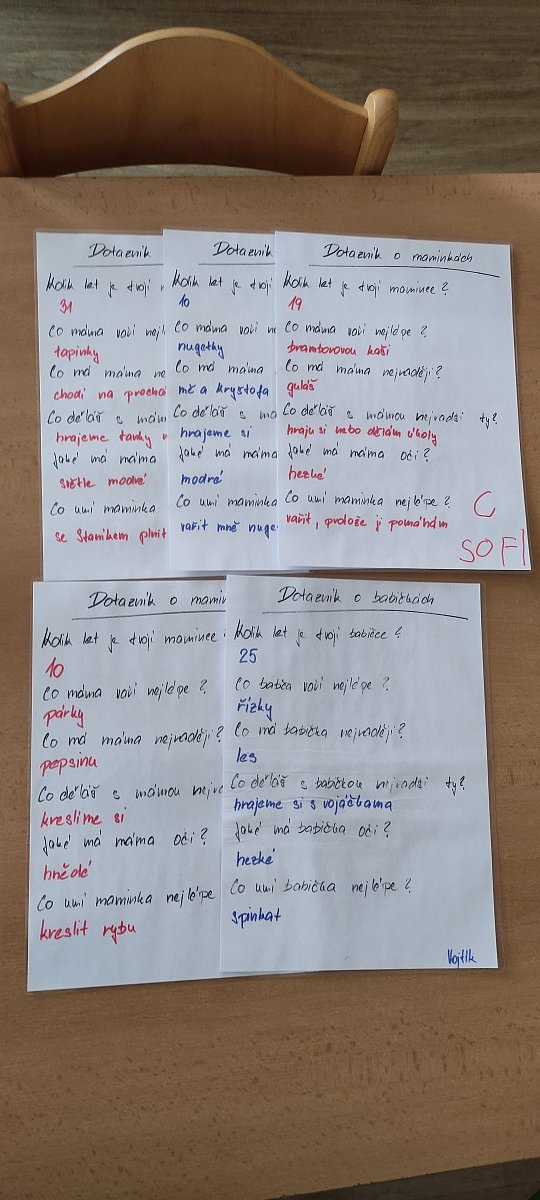 Dotazník
Kolik let je tvojí
31
Co máma vaří nejl
tapinky
Co má máma ne
chodí na procház
Co děláš s mám
hrajeme tanky
Jaké má máma
světle modré
Co umí maminka
se Staníkem plnit
Dotazník
Kolik let je tvojí
10
Co máma vaří n
nugetky
Co má máma
mě a kryštofa
Co děláš s ma
hrajeme si
Jaké má máma
modré
Co umí maminka
vařit mně nuge
Dotazník o maminkách
Kolik let je tvojí mamince?
19
Co máma vaří nejlépe?
bramborovou kaši
Co má máma nejraději?
guláš
Co děláš s mámou nejradši ty?
hraju si nebo dělám úkoly
Jaké má máma oči?
hezké
Co umí maminka nejlépe?
vařit, protože jí pomáhám
SOFI
Dotazník o mamin
Kolik let je tvojí mamince
10
Co máma vaří nejlépe?
párky
Co má máma nejraději?
pepsinu
Co děláš s mámou nejra
kreslíme si
Jaké má máma oči?
hnědé
Co umí maminka nejlépe
kreslit rybu
Dotazník o babičkách
Kolik let je tvojí babičce?
25
Co babča vaří nejlépe?
řízky
Co má babička nejraději?
les
Co děláš s babičkou nejradši ty?
hrajeme si s vojáčkama
Jaké má babička oči?
hezké
Co umí babička nejlépe?
spinkat
Vojtík